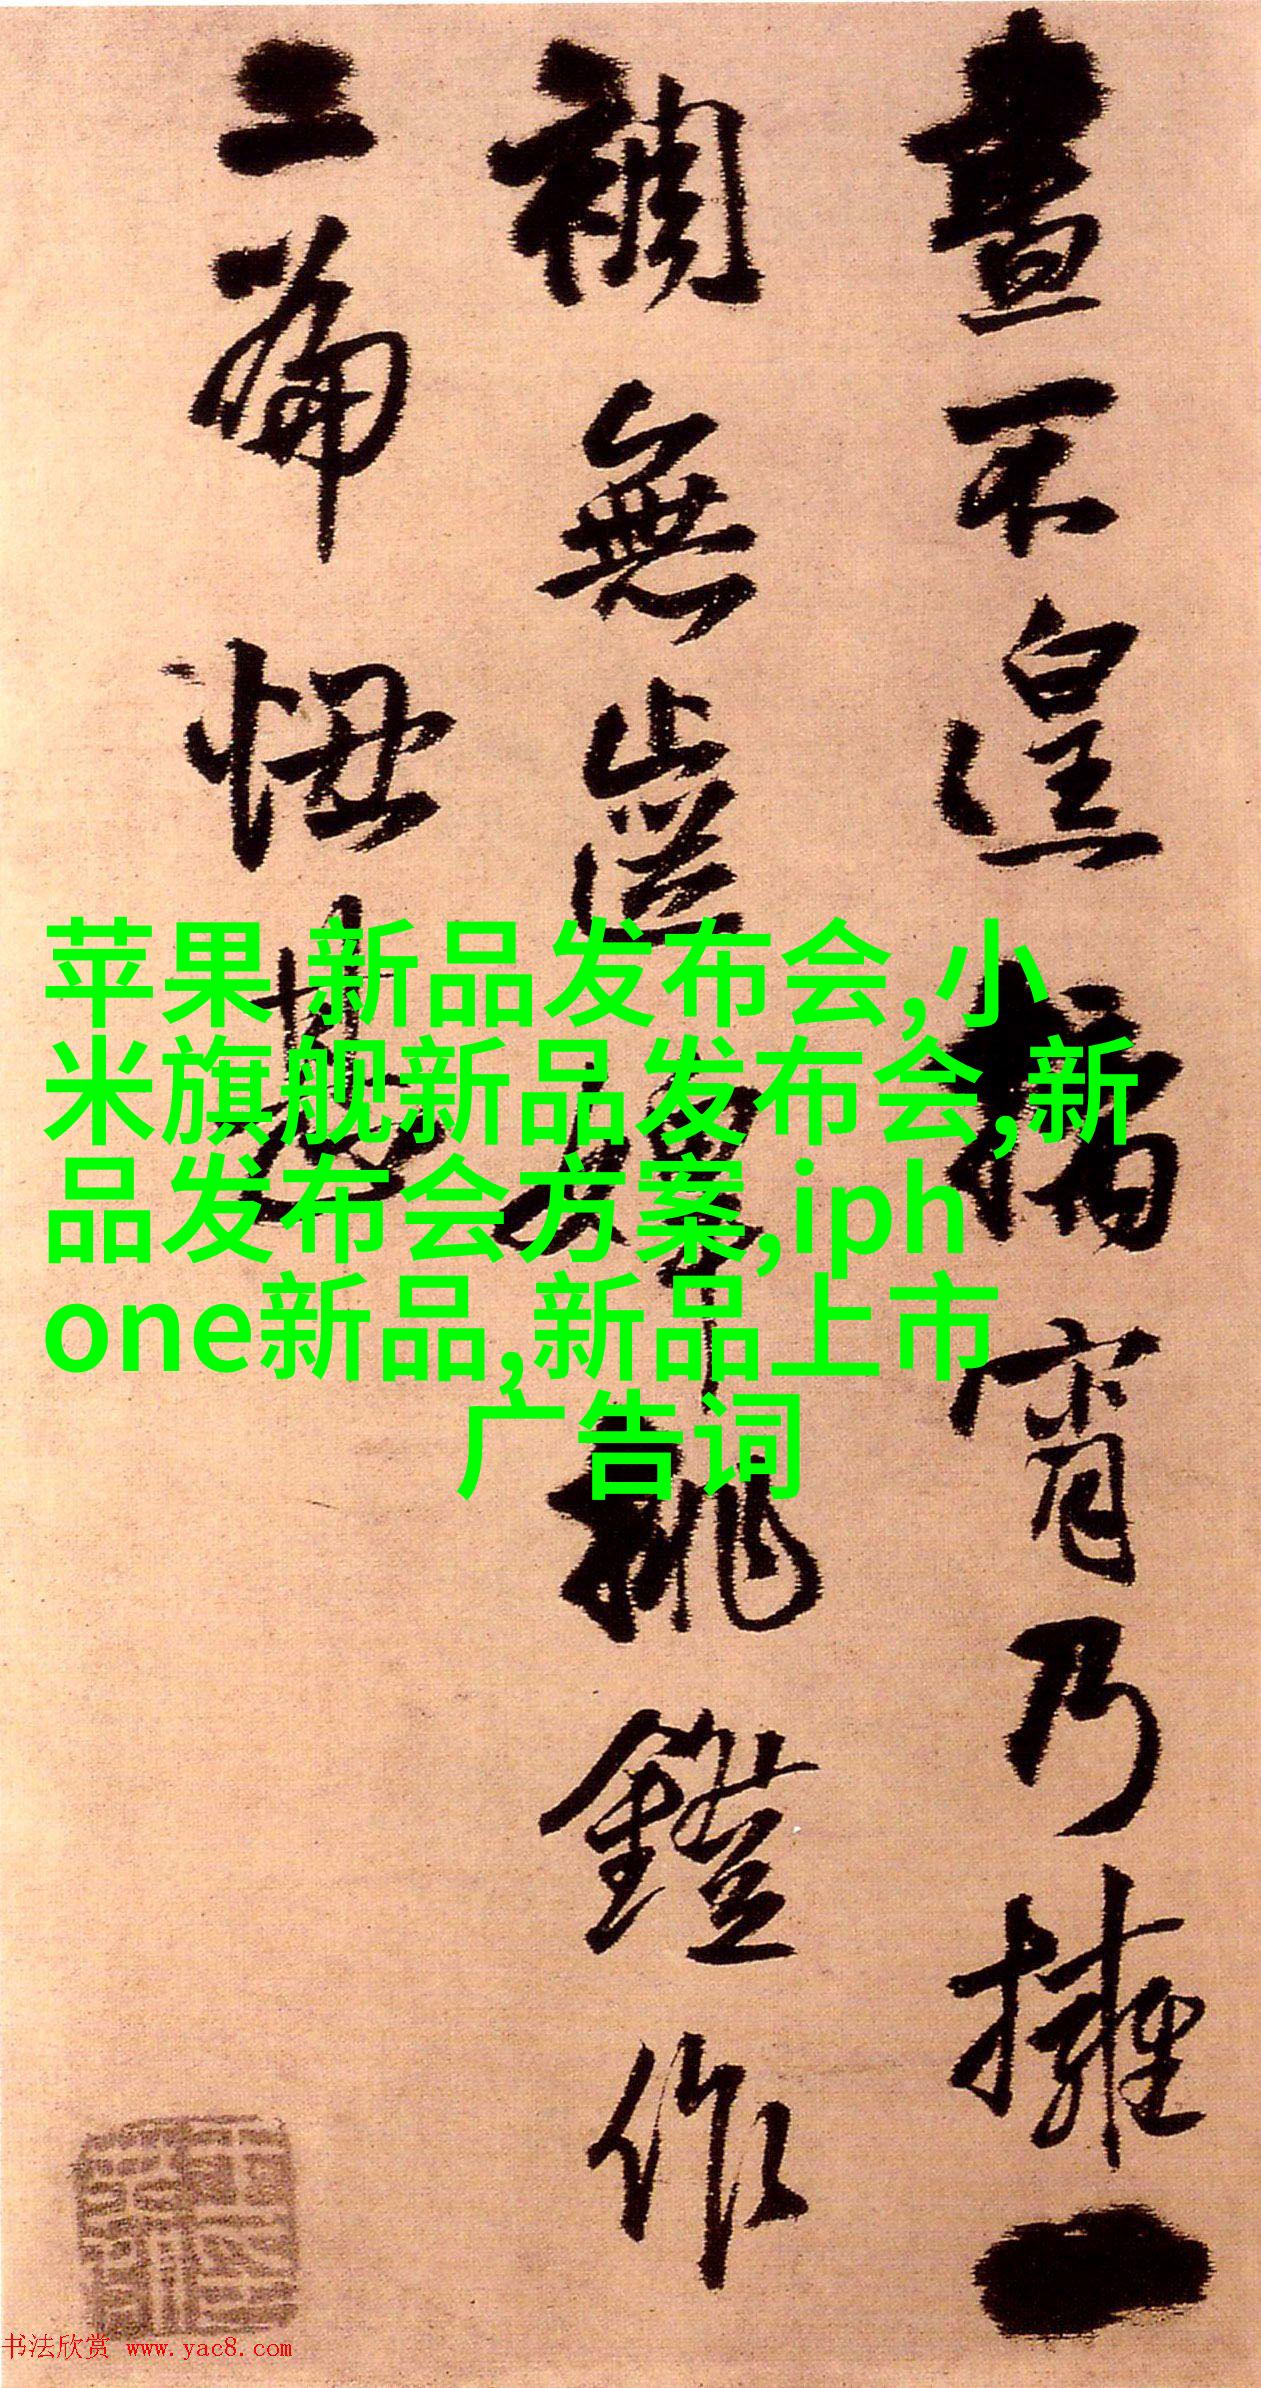 晝不遑摛宵乃擁一
裯無從婢挑鐙作
二篇忸甚
苹果 新品发布会,小
米旗舰新品发布会,新
品发布会方案,iph
one新品,新品上市
广告词
书法欣赏 www.yac8.com